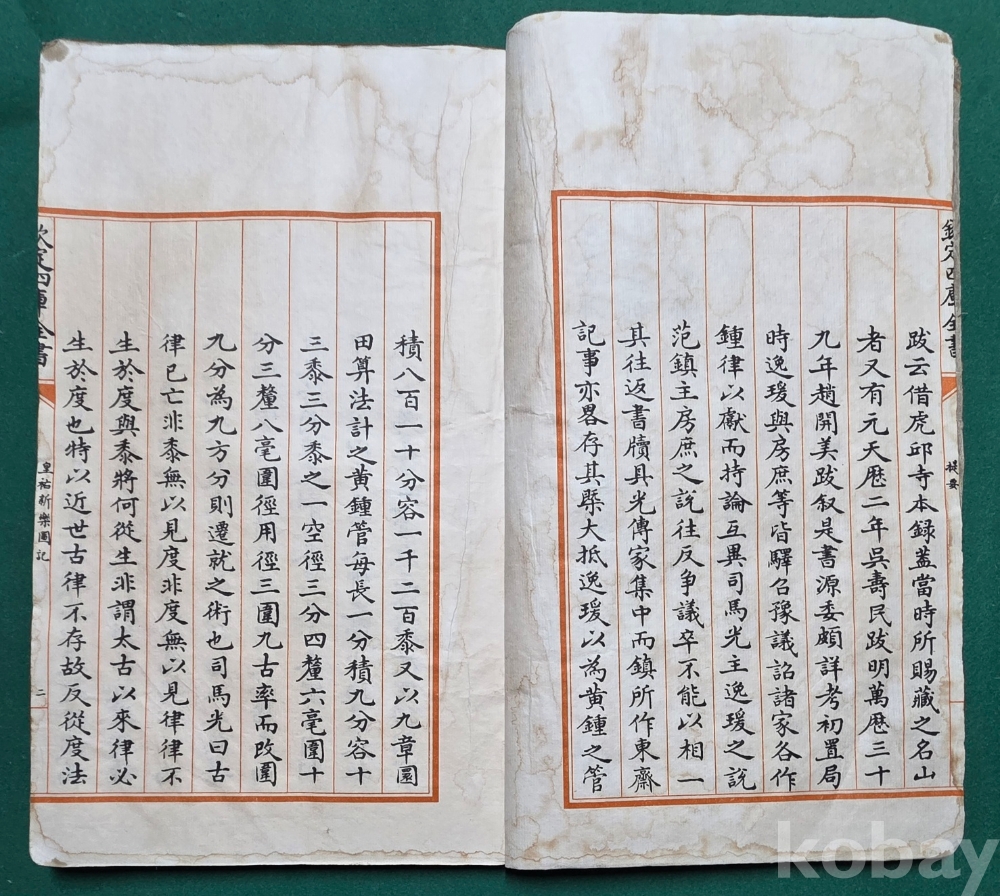 欽定四庫全書
提要
跋云借虎邱寺本録盖當時所賜藏之名山
者又有元天歷二年吳壽民跋明萬歷三十
九年趙開美跋叙是書源委頗詳考初置局
時逸瑗與房庶等皆驛召豫議詔諸家各作
鍾律以獻而持論互異司馬光主逸瑗之説
范鎮主房庶之説往反争議卒不能以相一
其往返書牘具光傳家集中而鎮所作東齋
記事亦畧存其槩大抵逸瑗以為黄鍾之管
積八百一十分容一千二百黍又以九章圜
田算法計之黄鍾管每長一分積九分容十
三黍三分黍之一空徑三分四釐六毫圍十
分三釐八毫圍徑用徑三圍九古率而改圍
九分為九方分則遷就之術也司馬光曰古
律已亡非黍無以見度非度無以見律律不
生於度與黍將何從生非謂太古以來律必
生於度也特以近世古律不存故反從度法
欽定四庫全書
皇祐新樂圖記
二
kobay